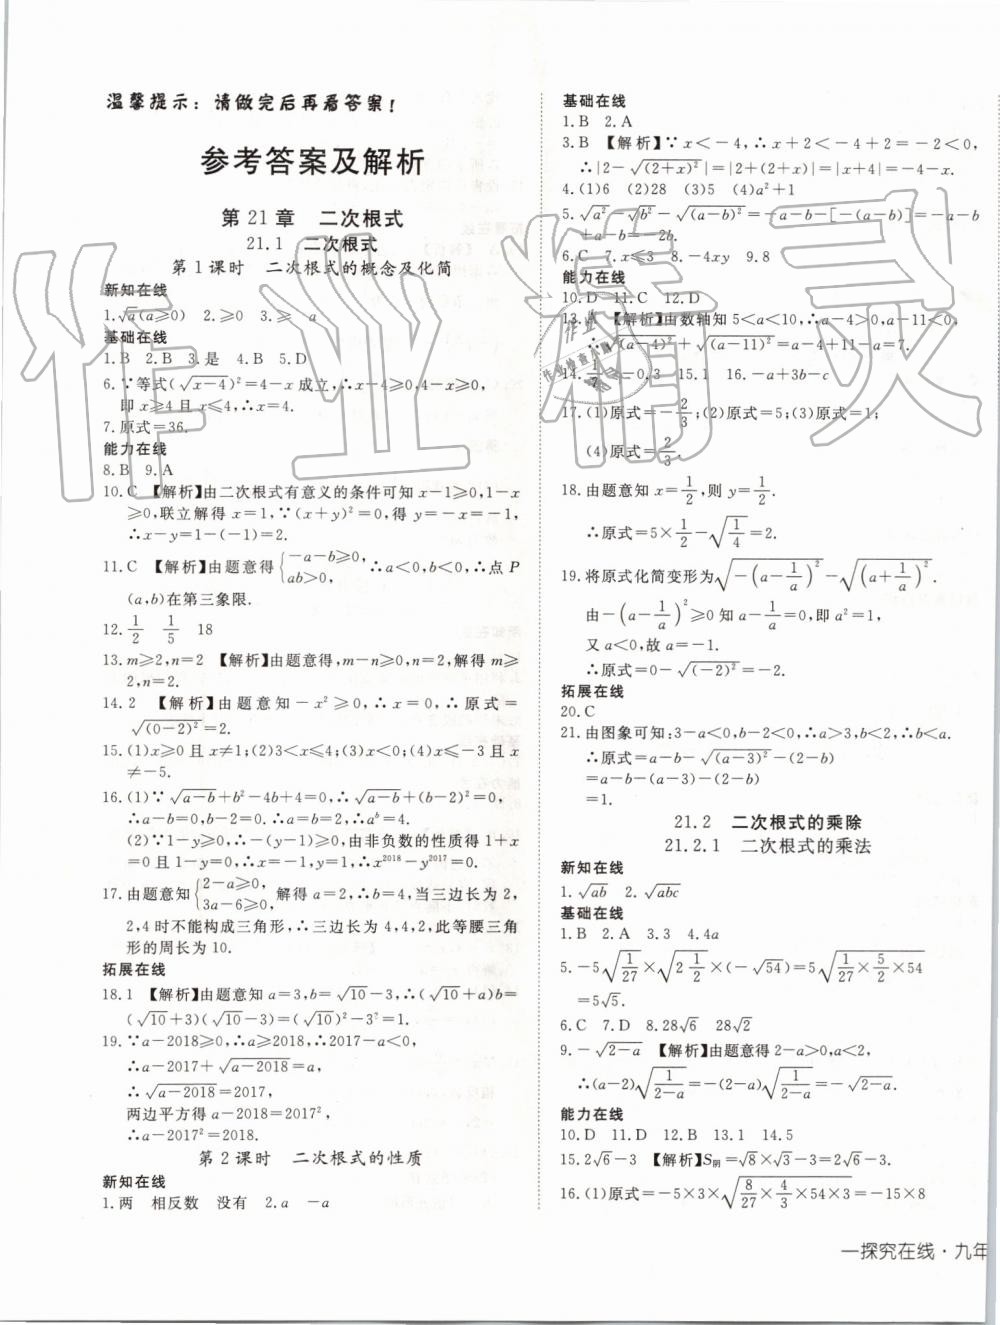 温馨提示：请做完后再看答案！
参考答案及解析
第21章　二次根式
21.1　二次根式
第1课时　二次根式的概念及化简
新知在线
1.√a(a≥0)　2.≥0　3.≥　a
基础在线
1.B　2.B　3.是　4.B　5.D
6.∵等式(√(x-4))²=4-x成立,∴x-4≥0,4-x≥0,
即x≥4且x≤4,∴x=4.
7.原式=36.
能力在线
8.B　9.A
10.C　【解析】由二次根式有意义的条件可知x-1≥0,1-x
≥0,联立解得x=1,∵(x+y)²=0,得y=-x=-1,
∴x-y=1-(-1)=2.
11.C　【解析】由题意得{-a-b≥0, ab>0, ∴a<0,b<0,∴点P
(a,b)在第三象限.
12.1/2　1/5　18
13.m≥2,n=2　【解析】由题意得,m-n≥0,n=2,解得m≥
2,n=2.
14.2　【解析】由题意知-x²≥0,∴x=0,∴原式=
√((0-2)²)=2.
15.(1)x≥0且x≠1;(2)3<x≤4;(3)x<0;(4)x≤-3且x
≠-5.
16.(1)∵√(a-b)+b²-4b+4=0,∴√(a-b)+(b-2)²=0,
∴a-b=0,b-2=0.∴a=b=2,∴aᵇ=4.
(2)∵1-y≥0,∴-(y-1)≥0,由非负数的性质得1+x
=0,1-y=0,∴x=-1,y=1,∴x²⁰¹⁸-y²⁰¹⁷=0.
17.由题意知{2-a≥0, 3a-6≥0, 解得a=2,∴b=4,当三边长为2,
2,4时不能构成三角形,∴三边长为4,4,2,此等腰三角
形的周长为10.
拓展在线
18.1　【解析】由题意知a=3,b=√10-3,∴(√10+a)b=
(√10+3)(√10-3)=(√10)²-3²=1.
19.∵a-2018≥0,∴a≥2018,∴2017-a<0,
∴a-2017+√(a-2018)=a,
∴√(a-2018)=2017,
两边平方得a-2018=2017²,
∴a-2017²=2018.
第2课时　二次根式的性质
新知在线
1.两　相反数　没有　2.a　-a
基础在线
1.B　2.A
3.B　【解析】∵x<-4,∴x+2<-4+2=-2<0,
∴|2-√((2+x)²)|=|2+(2+x)|=|x+4|=-4-x.
4.(1)6　(2)28　(3)5　(4)a²+1
5.√(a²)-√(b²)-√((a-b)²)=-a-b-[-(a-b)]=-a-b
+a-b=-2b.
6.C　7.x≤3　8.-4xy　9.8
能力在线
10.D　11.C　12.D
13.　【解析】由数轴知5<a<10,∴a-4>0,a-11<0,
∴√((a-4)²)+√((a-11)²)=a-4+11-a=7.
14.　0,3　15.1　16.-a+3b-c
17.(1)原式=-2/3;(2)原式=5;(3)原式=1;
(4)原式=2/3.
18.由题意知x=1/2,则y=1/2.
∴原式=5×1/2-√(1/4)=2.
19.将原式化简变形为√(-(a-1/a)²)-√((a+1/a)²).
由-(a-1/a)²≥0知a-1/a=0,即a²=1,
又a<0,故a=-1.
∴原式=0-√((-2)²)=-2.
拓展在线
20.C
21.由图象可知:3-a<0,b-2<0,∴a>3,b<2,∴b<a.
∴原式=a-b-√((a-3)²)-(2-b)
=a-b-(a-3)-(2-b)
=1.
21.2　二次根式的乘除
21.2.1　二次根式的乘法
新知在线
1.√(ab)　2.√(abc)
基础在线
1.B　2.A　3.3　4.4a
5.-5√(1/27)×√(2 1/2)×(-√54)=5√(1/27×5/2×54)
=5√5.
6.C　7.D　8.28√6　28√2
9.-√(2-a)　【解析】由题意得2-a>0,a<2,
∴(a-2)√(1/(2-a))=-(2-a)√(1/(2-a))=-√(2-a).
能力在线
10.D　11.D　12.B　13.1　14.5
15.2√6-3　【解析】S阴=√8×√3-3=2√6-3.
16.(1)原式=-5×3×√(8/27×4/3×54×3)=-15×8
一探究在线·九年
作业精灵